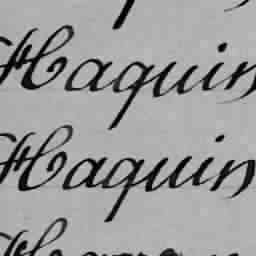 Haquin
Haquin